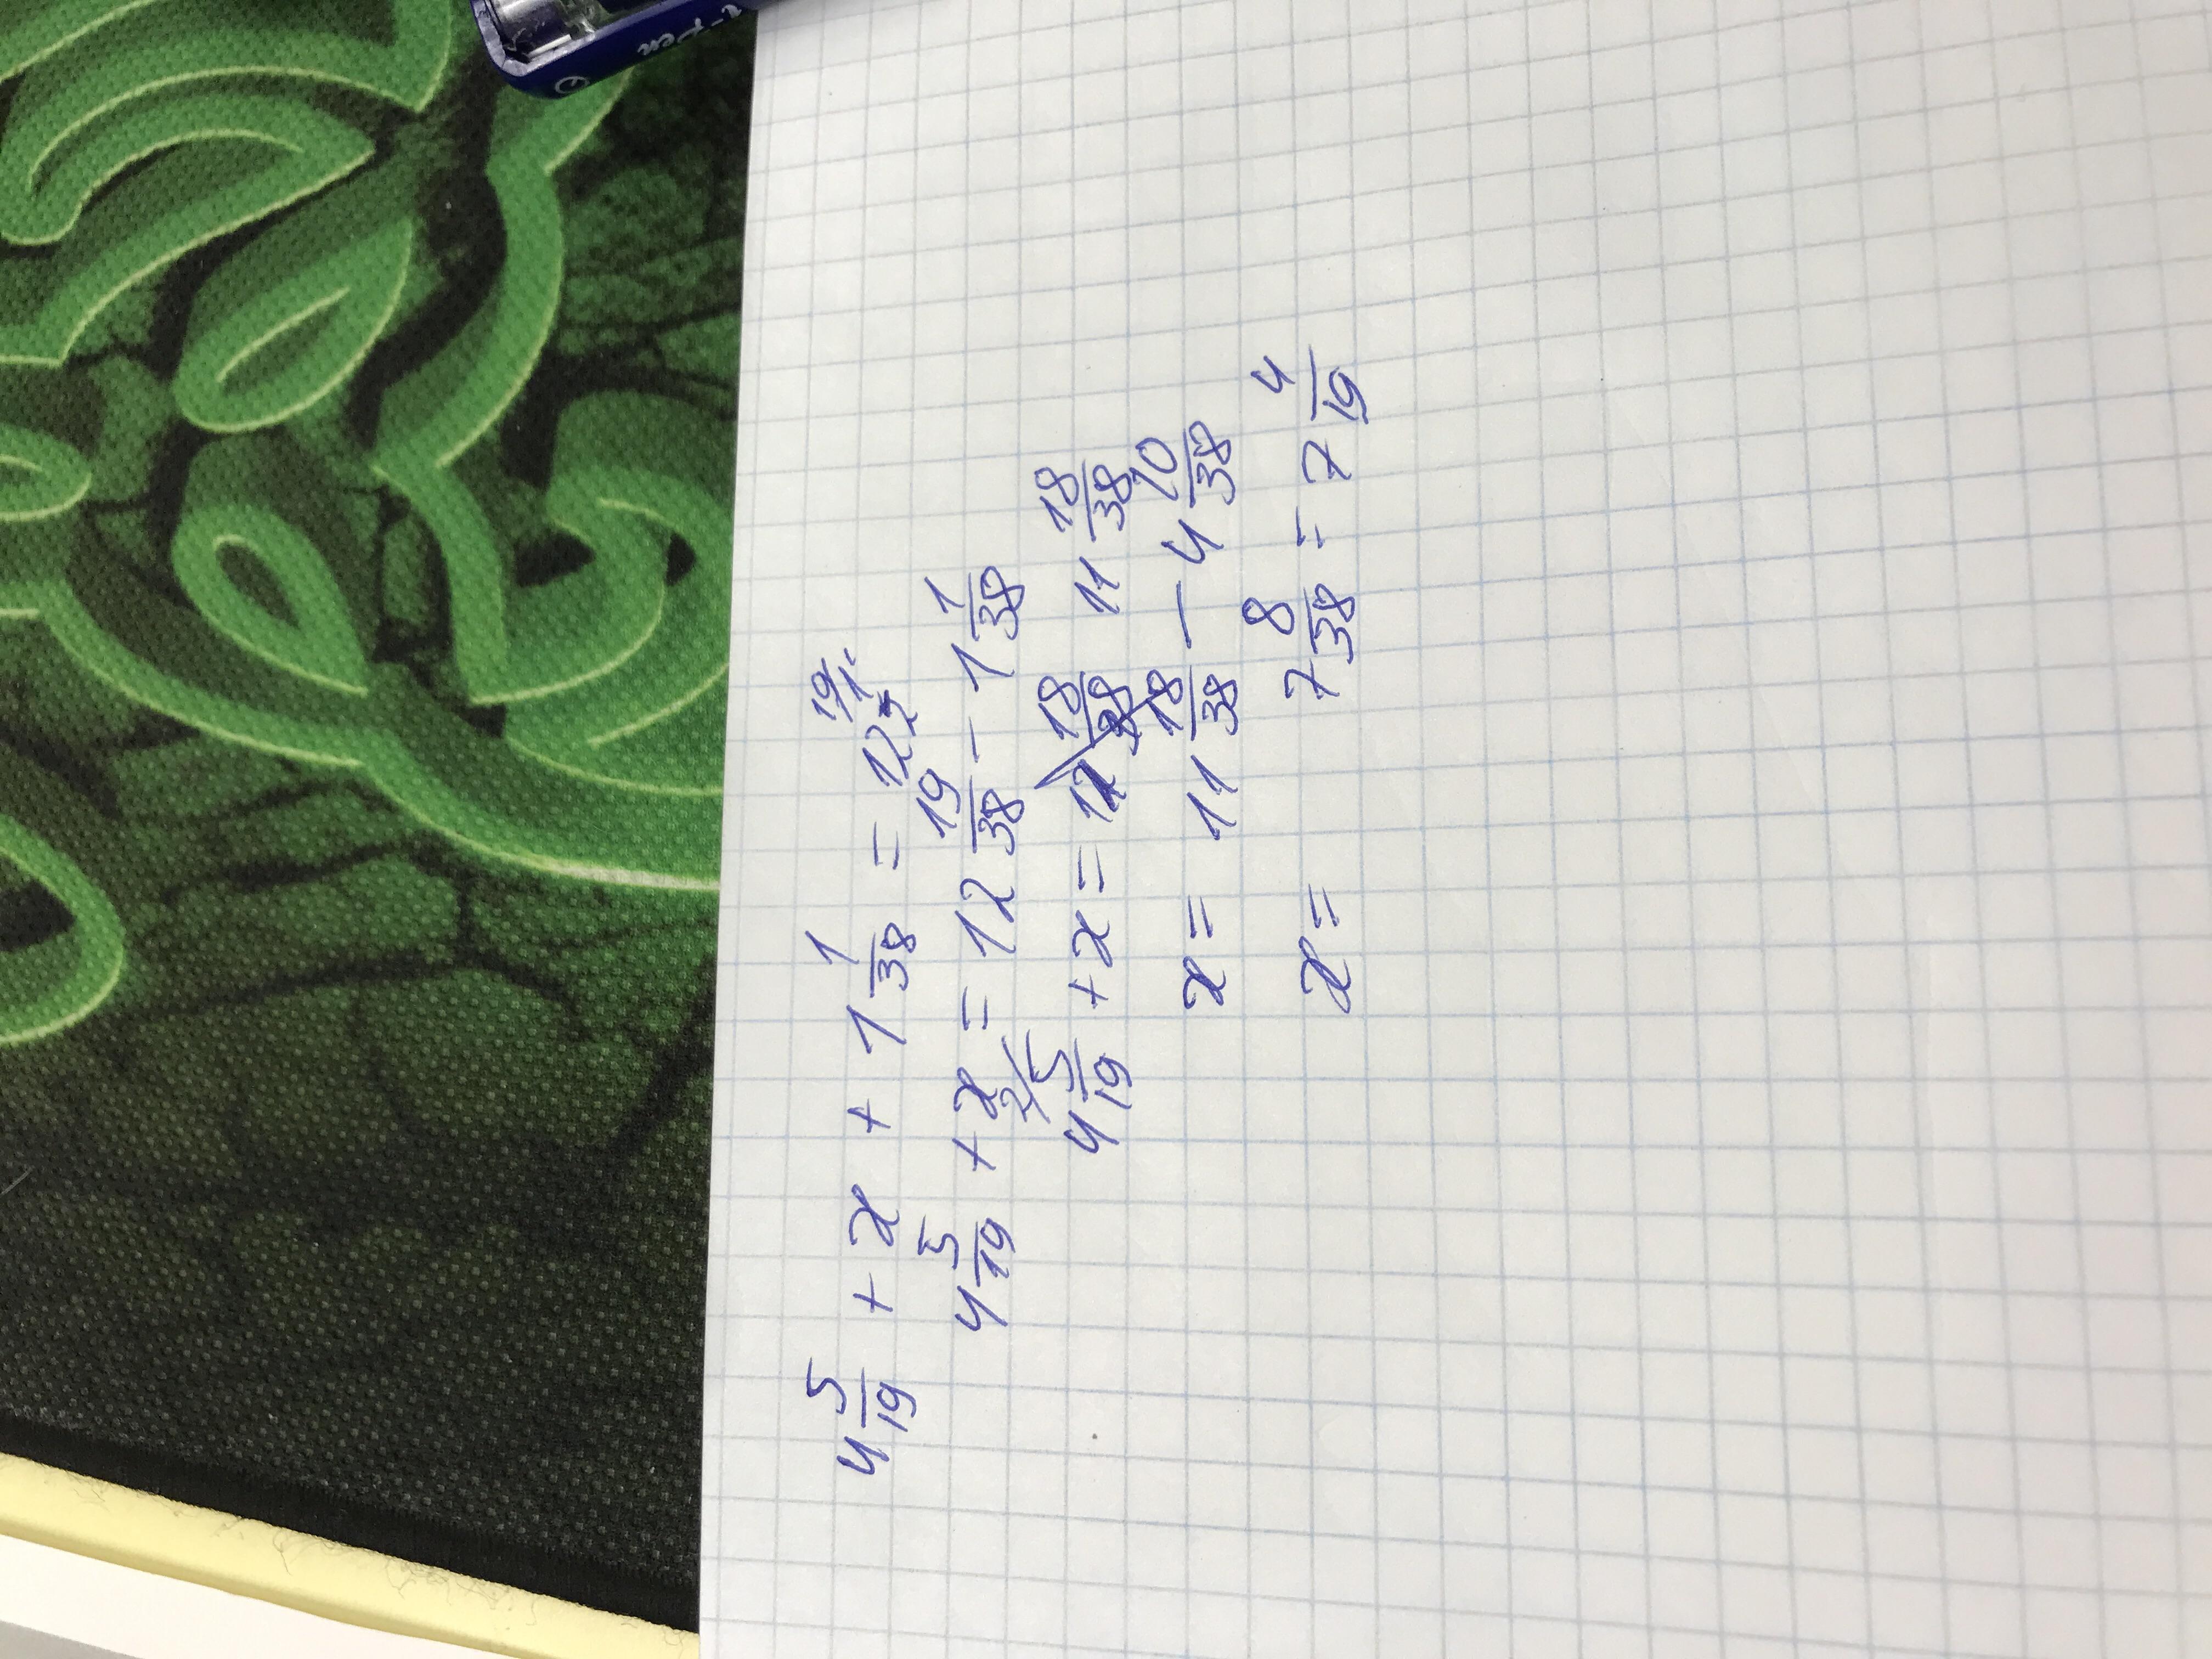 4 5/19 + x + 1 1/38 = 12 1/2 19/
4 5/19 + x = 12 19/38 - 1 1/38
2/ 4 5/19 + x = 12 18/38 11 18/38
x = 11 18/38 - 4 10/38
x = 7 8/38 = 7 4/19
Pen